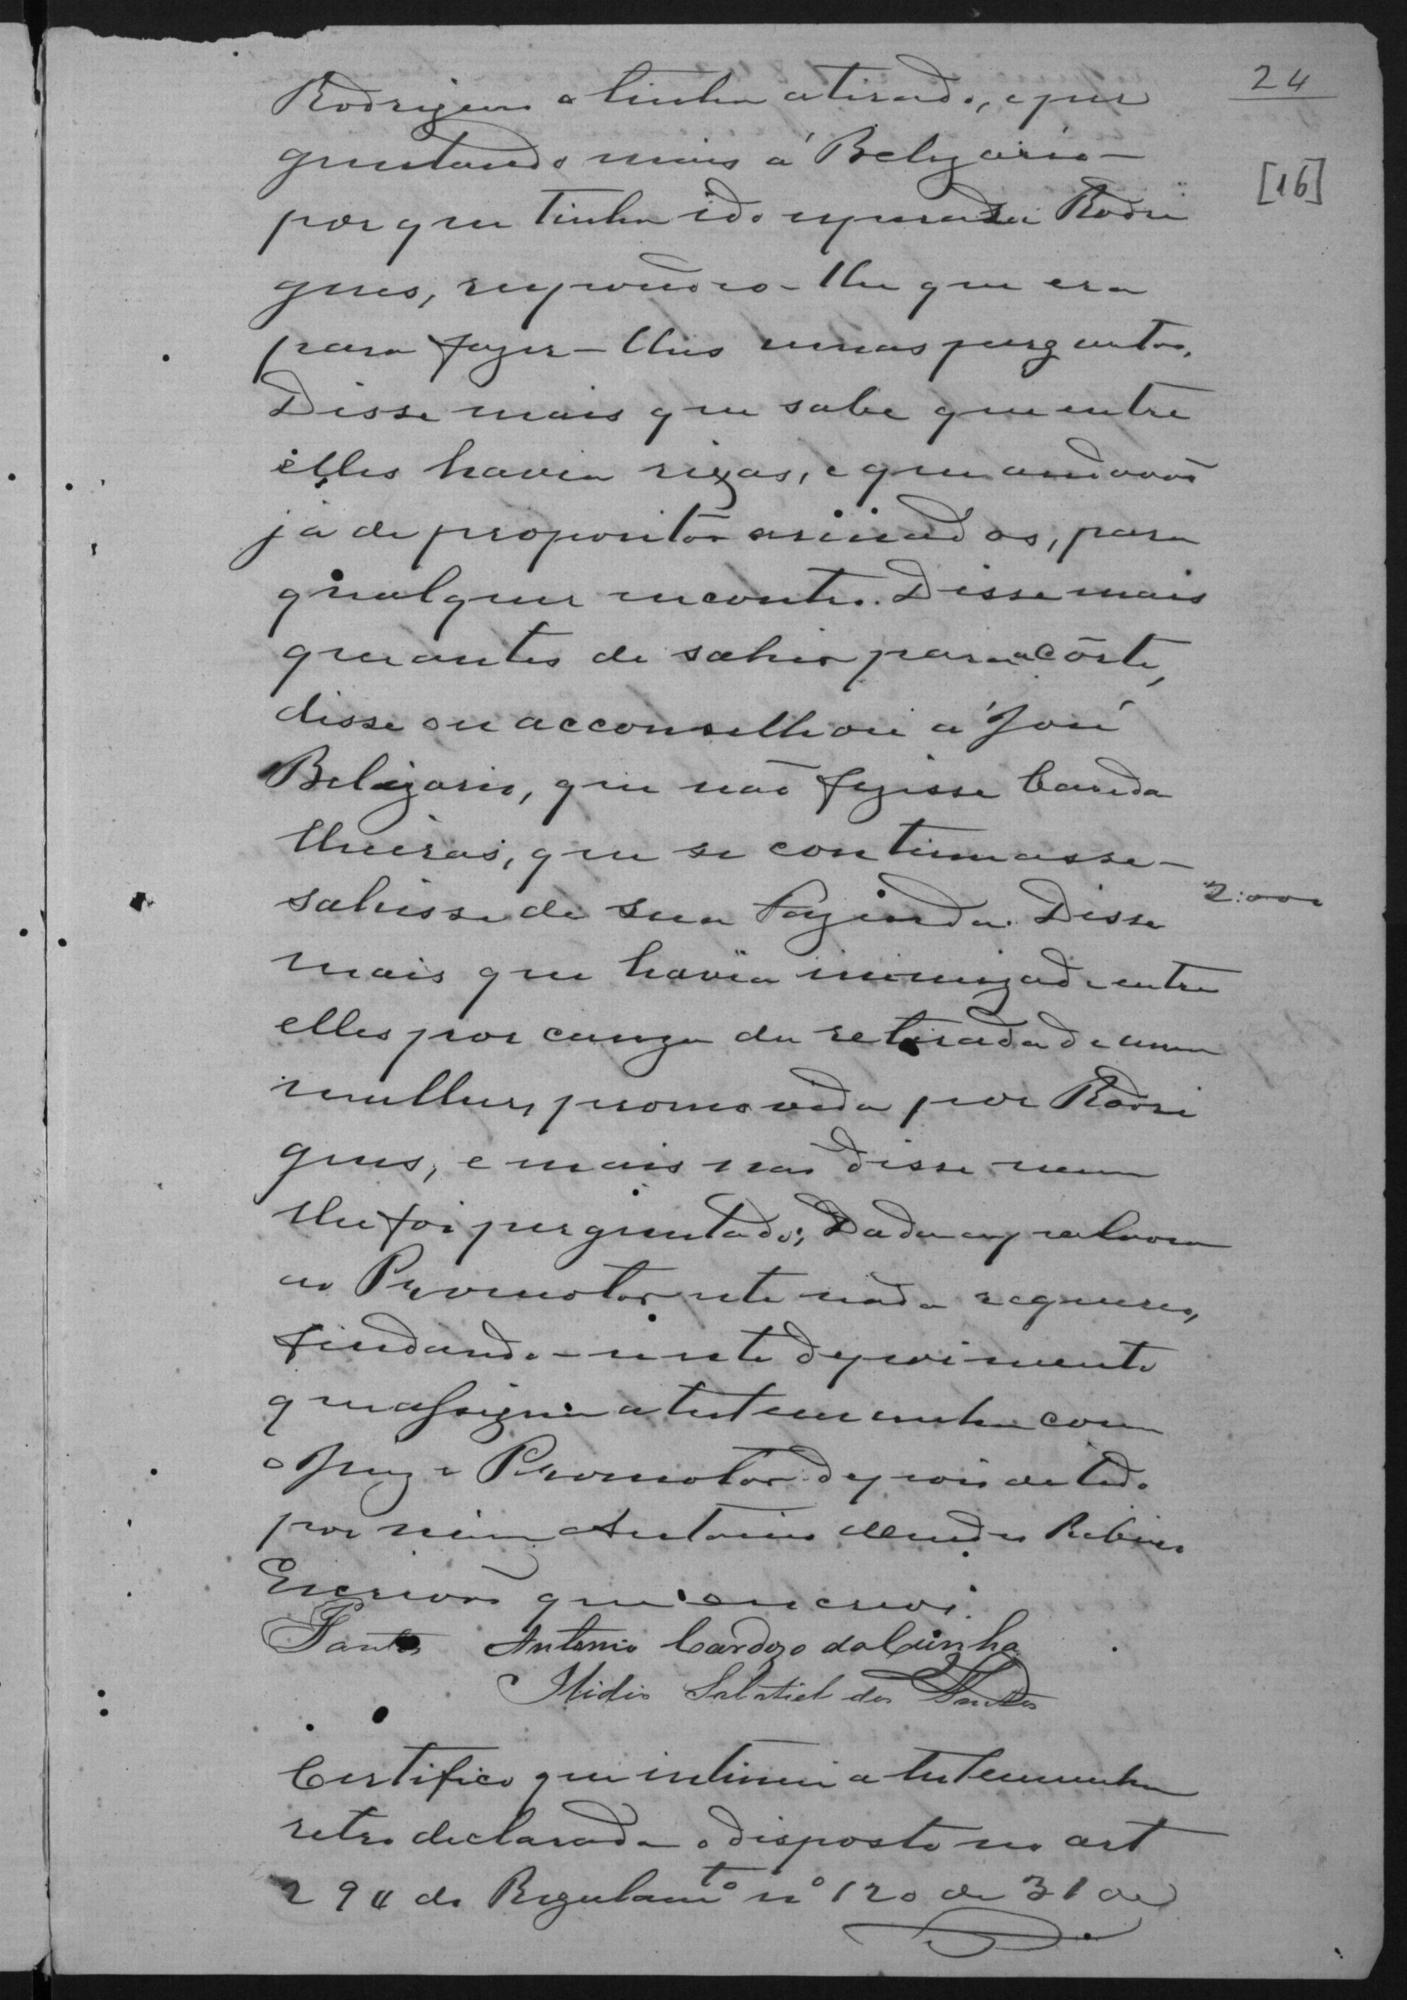 24
[16]
Rodrigues o tinha atirado, e per
guntando mais á Belizario -
por que tinha ido esperar a Rodri
gues, respondeo-lhe que era
para fazer-lhes umas perguntas.
Disse mais que sabe que entre
elles havia rixas, e que andavão
já de propositos armados, para
qualquer encontro. Disse mais
que antes de sahir para a côrte,
disse ou acconselhou a José
Belizario, que não fizesse banda
lheiras, que se continuasse -
sahisse de sua Fazenda. Disse
2:000
mais que havia inimizade entre
elles por cauza da retirada de uma
mulher, promovida por Rodri
gues, e mais não disse nem
lhe foi perguntado; Dada a palavra
ao Promotor este nada requereo,
findando-se este depoimento
que assigna a testemunha com
o Juiz e Promotor depois de lido
por mim Antonio Mendes Ribeiro
Escrivão que escrevi.
Santos Antonio Cardozo da Cunha
Elidio Salatiel dos Santos
Certifico que intimei a testemunha
retro declarada o disposto no art
294 do Regulam.to nº 120 de 31 de